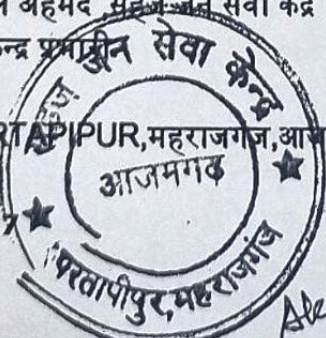 अहमद सहज जन सेवा केंद्र
सहज जन सेवा केन्द्र
RTAPIPUR,महराजगंज,आज
आजमगढ
परतापीपुर,महराजगंज